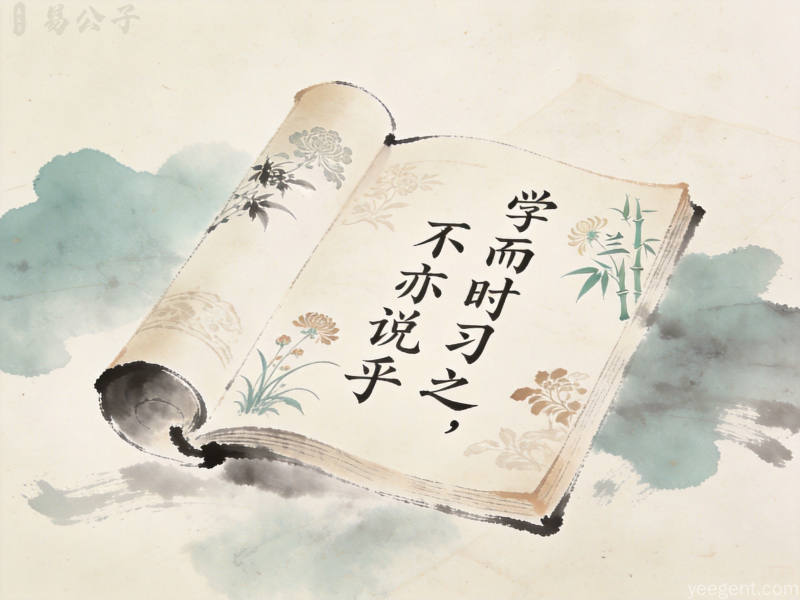 易公子
学而时习之，
不亦说乎
yeegent.com